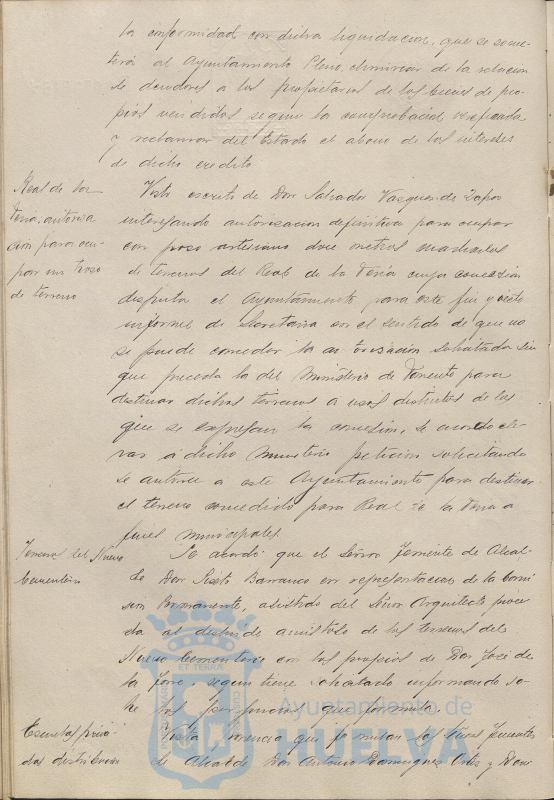 la conformidad con dicha liquidacion, que se some-
terá al Ayuntamiento Pleno, eliminar de la relacion
de deudores a los propietarios de los bienes de pro-
pios vendidos segun la comprobacion verificada
y reclamar del Estado el abono de los intereses
de dicho credito.
Real de la
Feria, autoriza
cion para ocu-
par un trozo
de terreno
Visto escrito de Don Salvador Vazquez de Zafra
interesando autorizacion definitiva para ocupar
con pozo artesiano doce metros cuadrados
de terrenos del Real de la Feria cuya concesión
disfruta el Ayuntamiento para este fin y visto
informe de Secretaria en el sentido de que no
se puede conceder la autorizacion solicitada sin
que preceda la del Ministerio de Fomento para
destinar dichos terrenos a usos distintos de los
que se expresan la concesión, se acordo ele-
var a dicho Ministerio peticion solicitando
se autorice a este Ayuntamiento para destinar
el terreno concedido para Real de la Feria a
fines municipales.
Terrenos del Nuevo
Cementerio
Se acordó que el Señor Teniente de Alcal-
de Don Sixto Barranco en representacion de la Comi-
sion Permanente, asistido del Señor Arquitecto proce-
da al deslinde amistoso de los terrenos del
Nuevo Cementerio con los propios de Don José de
la Torre segun tiene solicitado informando so-
bre las que formula.
Escuelas priva-
das distribucion
Vista ponencia que formulan los Señores Tenientes
de Alcalde Don Antonio Dominguez Ortiz y Don
Ayuntamiento de
HUELVA
ET TERRÆ